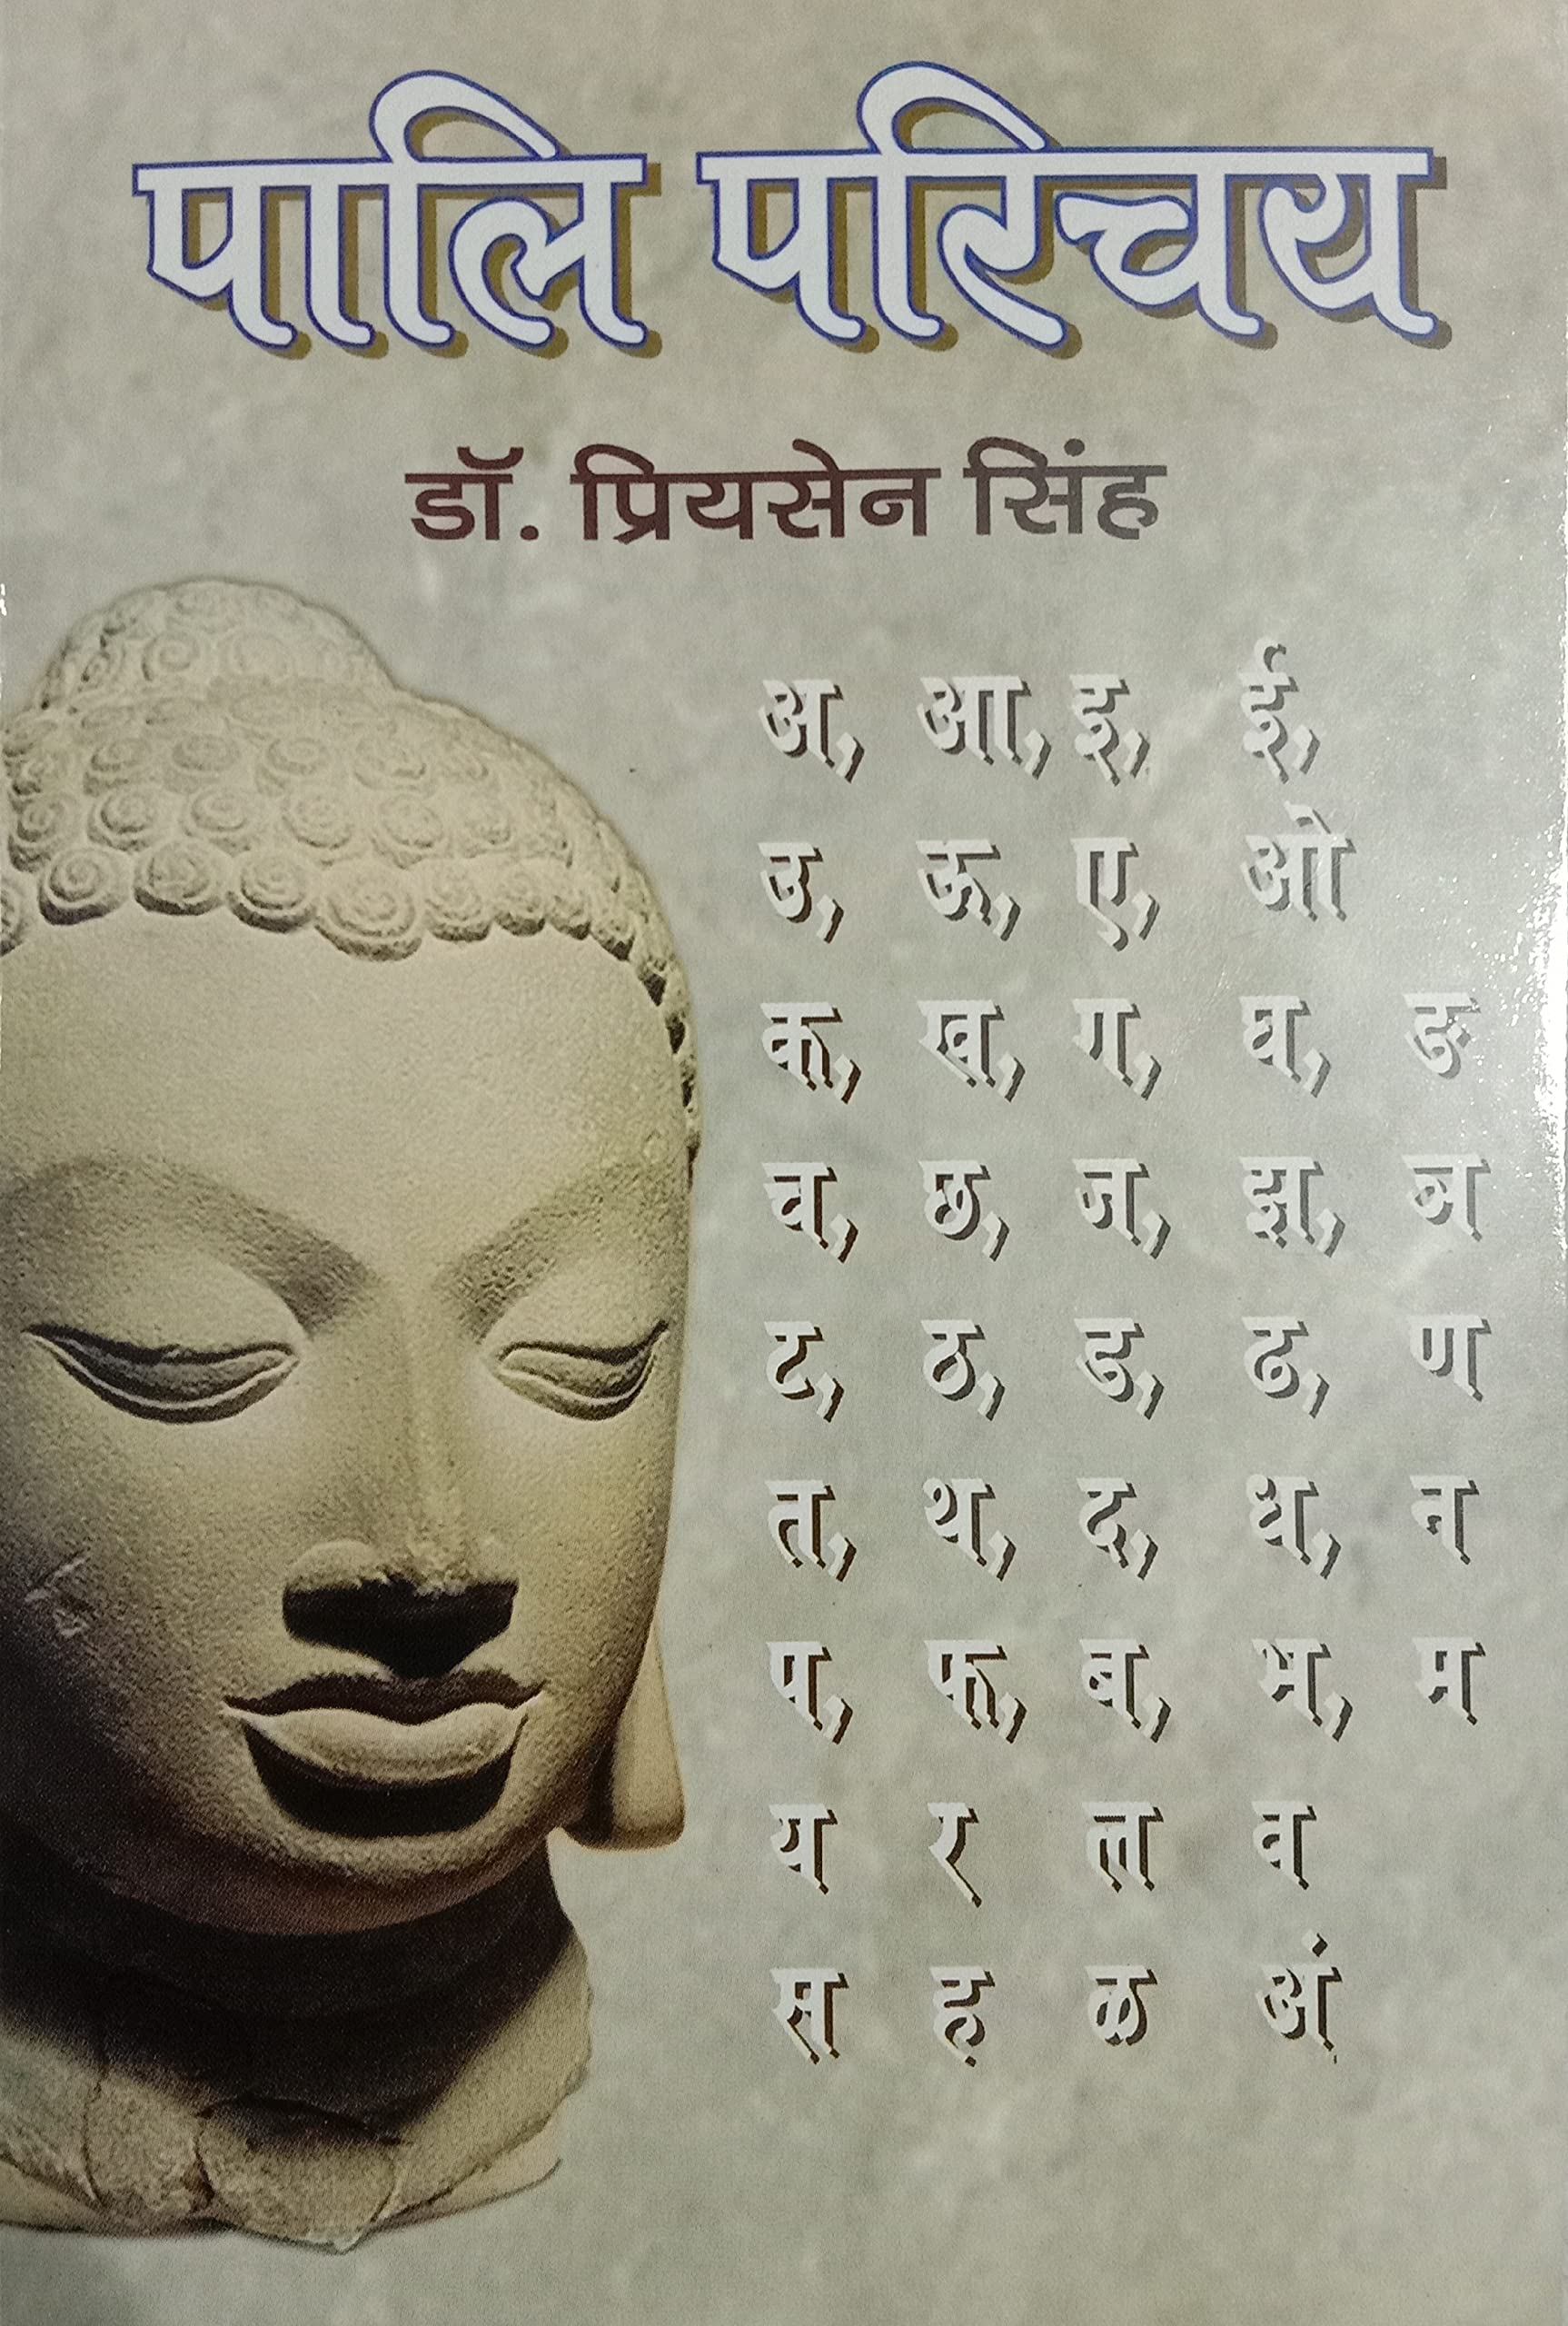 पालि परिचय
डॉ. प्रियसेन सिंह
अ, आ, इ, ई
उ, ऊ, ए, ओ
क, ख, ग, घ, ङ
च, छ, ज, झ, ञ
ट, ठ, ड, ढ, ण
त, थ, द, ध, न
प, फ, ब, भ, म
य र ल व
स ह ळ अं